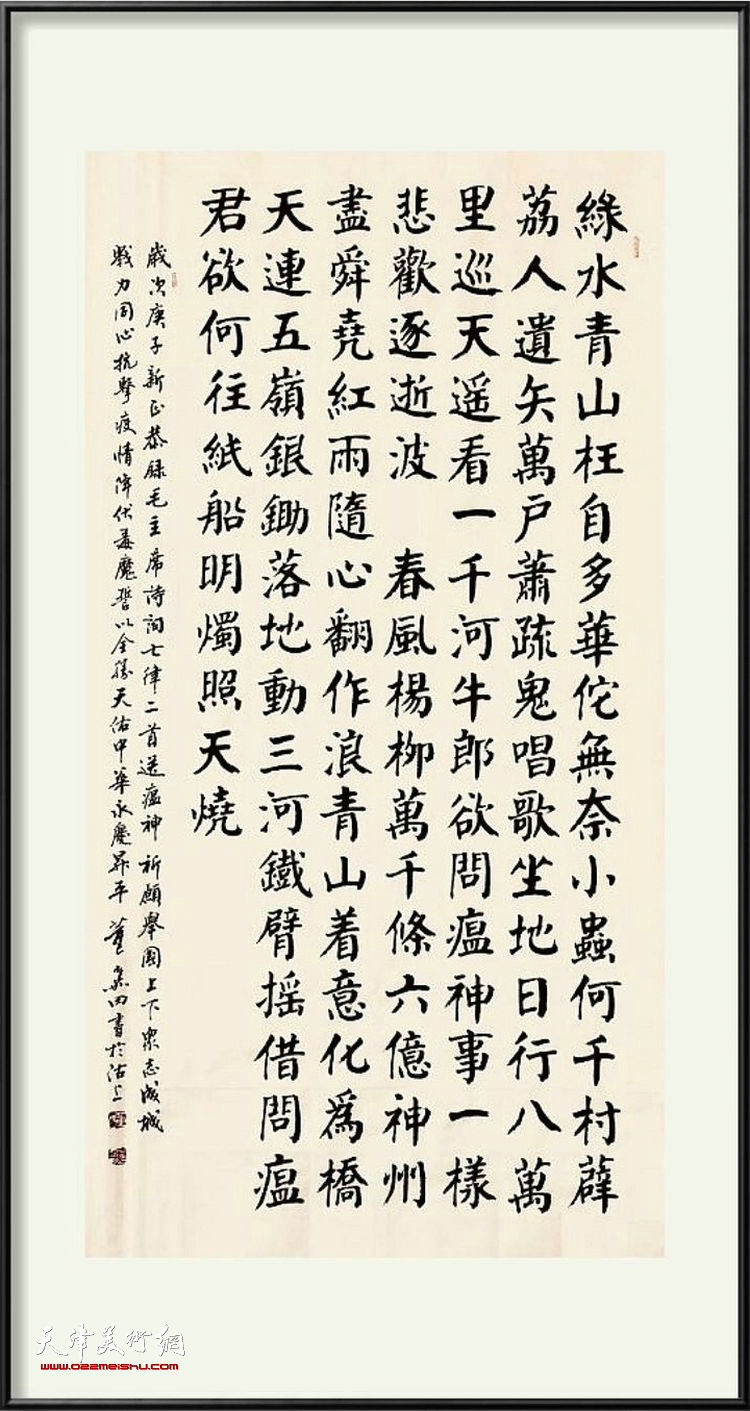 綠水青山枉自多華佗無奈小蟲何千村薜
荔人遺矢萬戶蕭疏鬼唱歌坐地日行八萬
里巡天遥看一千河牛郎欲問瘟神事一樣
悲歡逐逝波 春風楊柳萬千條六億神州
盡舜堯紅雨隨心翻作浪青山着意化為橋
天連五嶺銀鋤落地動三河鐵臂摇借問瘟
君欲何往紙船明燭照天燒
歲次庚子新正恭録毛主席詩詞七律二首送瘟神 祈願舉國上下眾志成城
戮力同心抗擊疫情降伏毒魔誓以全勝天佑中華永慶昇平 董西書於沽上
天津美術網
www.022meishu.com